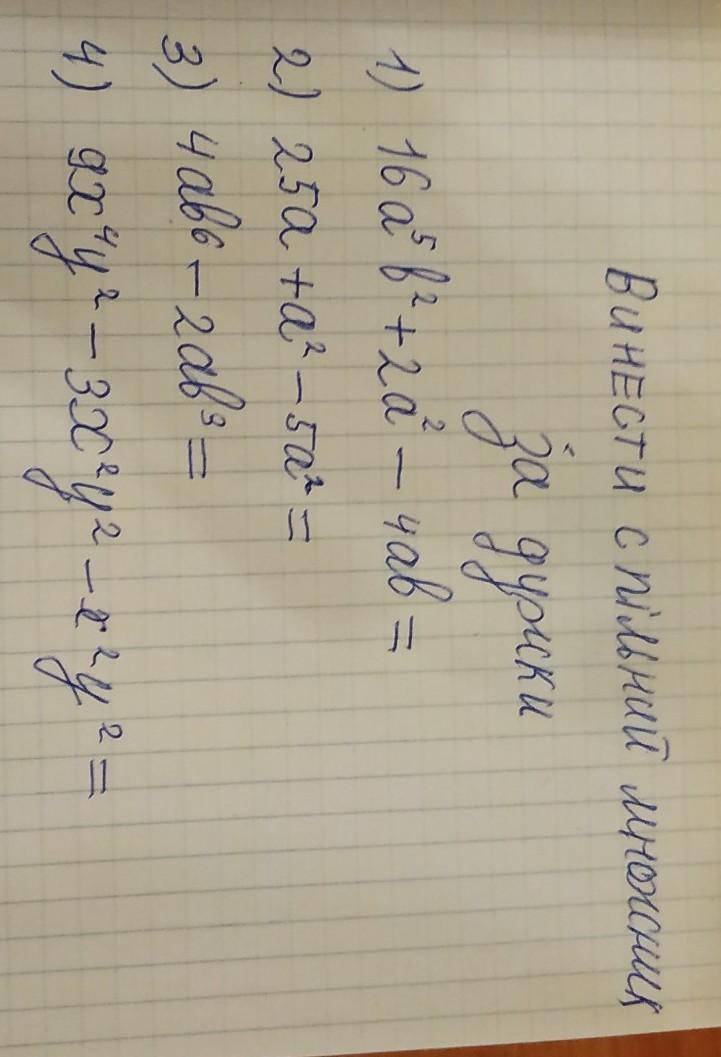 Винести спільний множник
за дужки
1) 16a⁵b² + 2a² − 4ab =
2) 25a + a² − 5a² =
3) 4ab⁶ − 2ab³ =
4) 9x⁴y² − 3x²y² − x²y² =